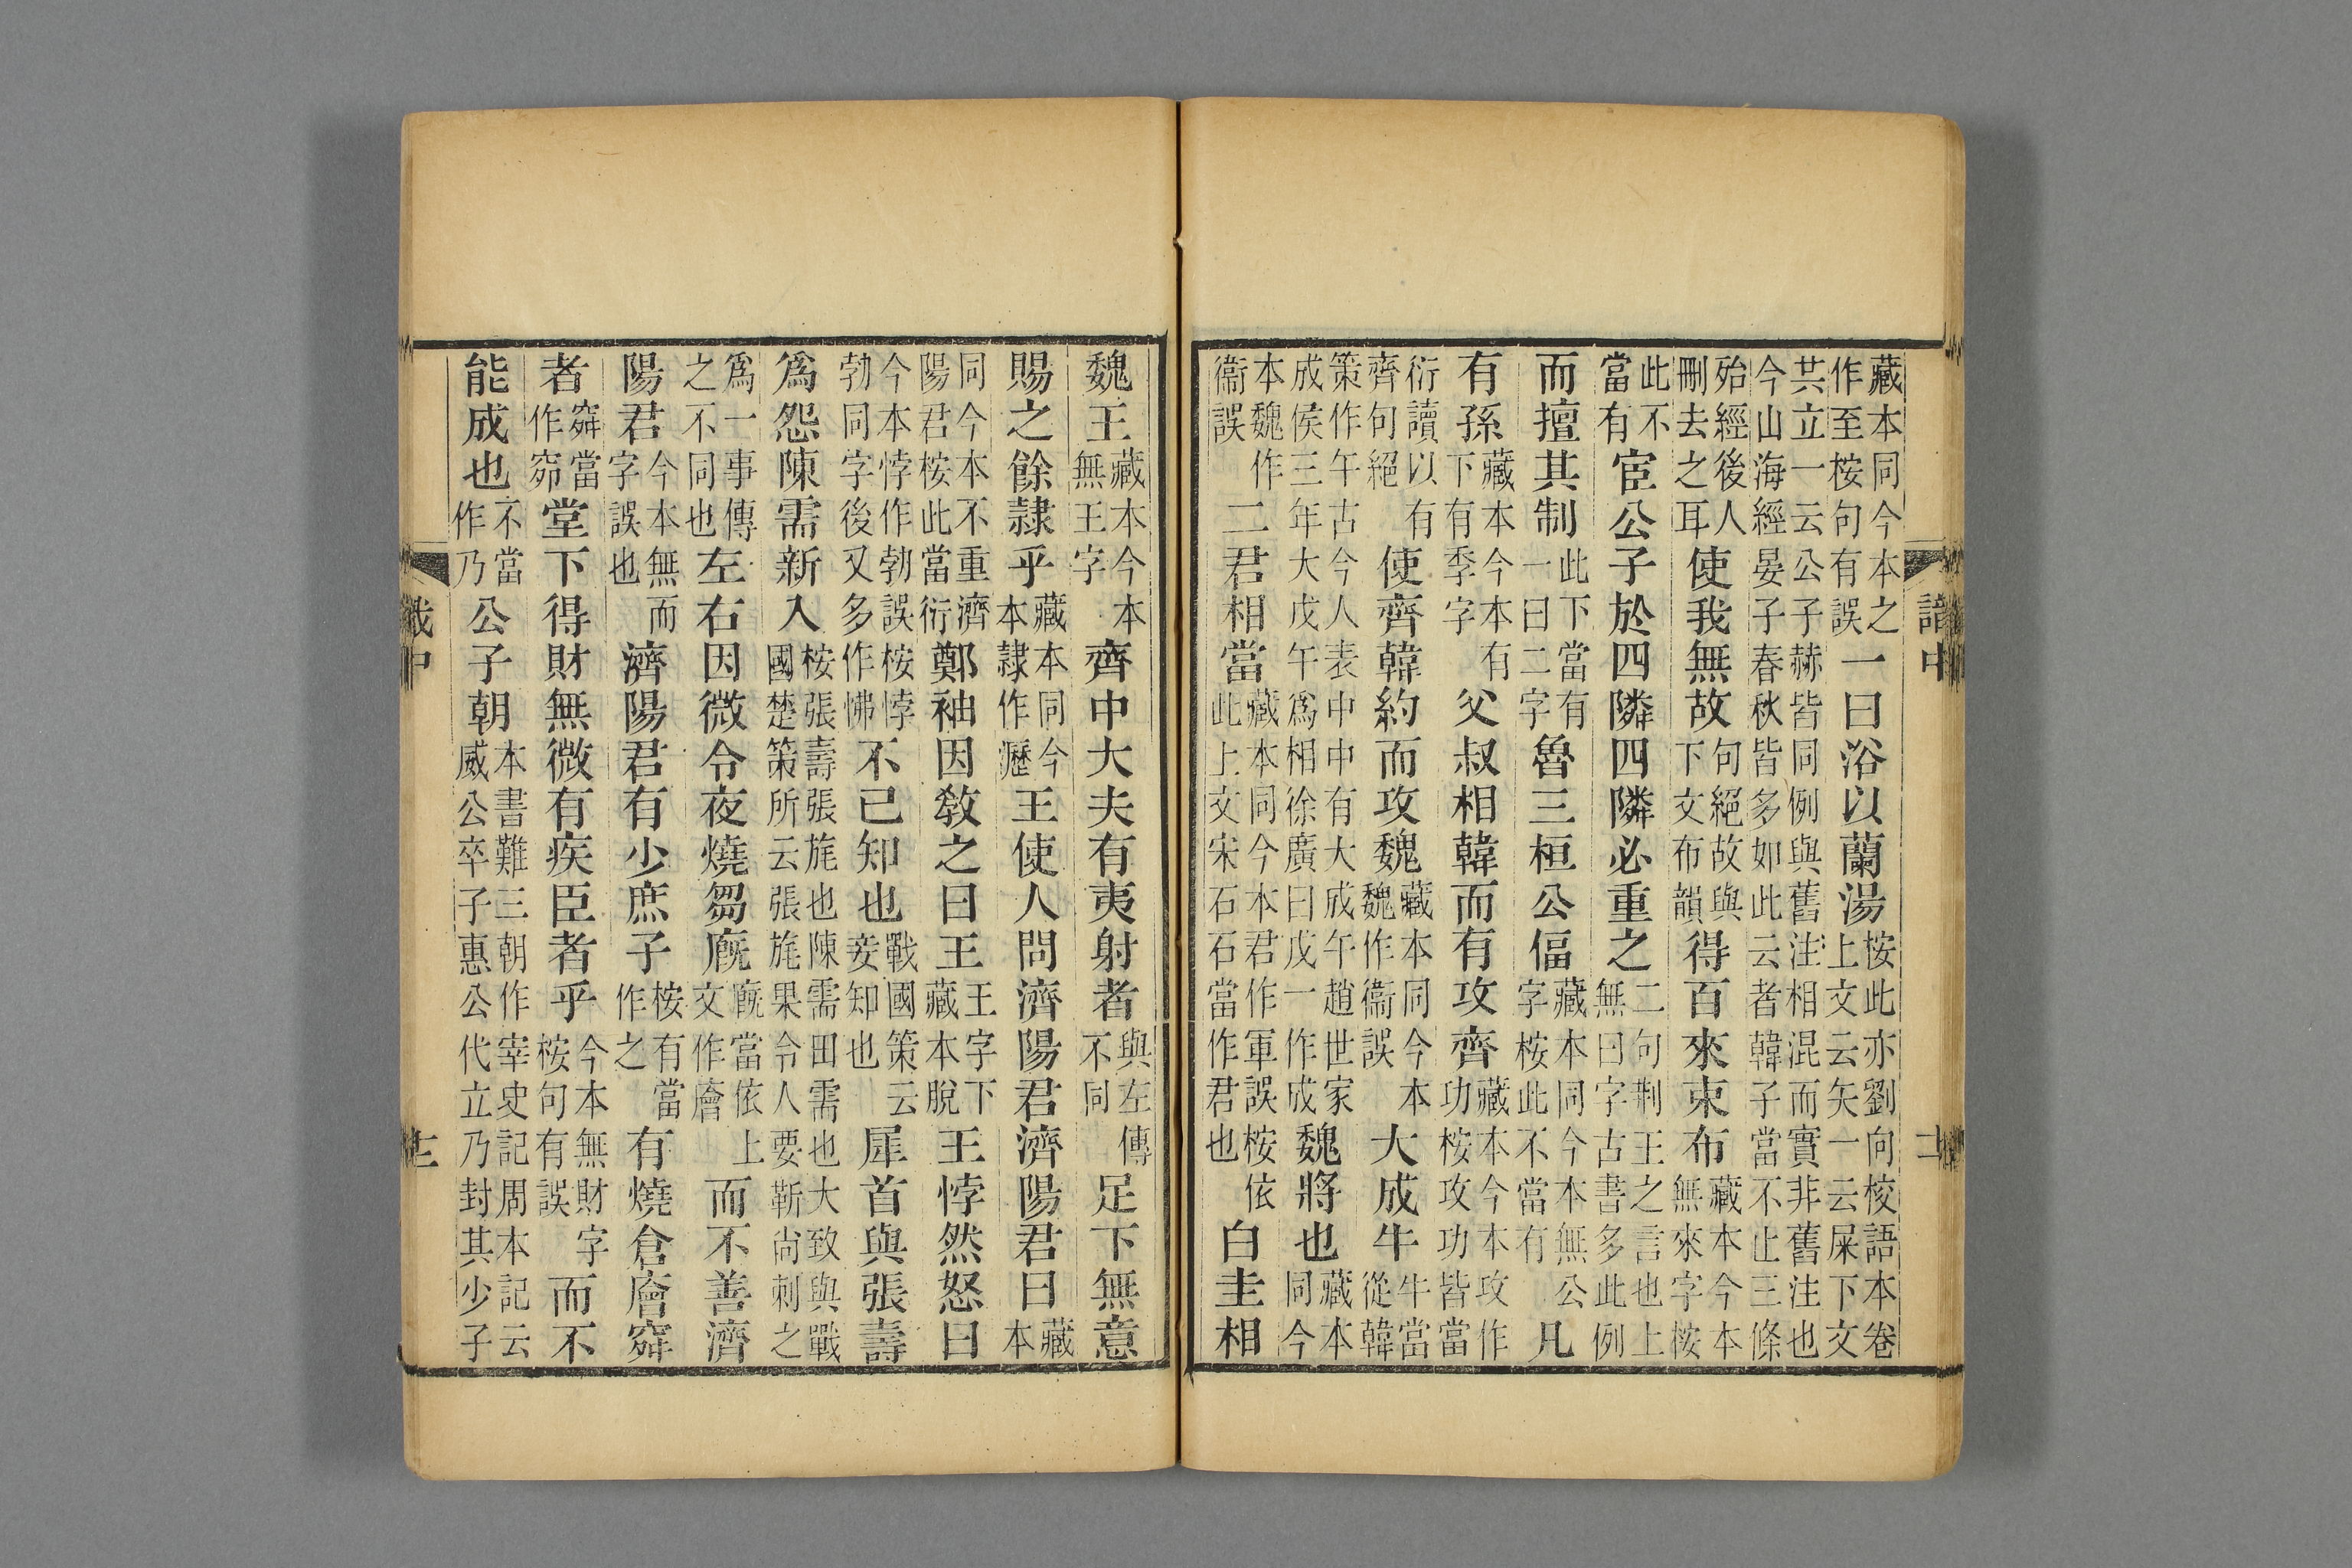 藏本同今本之作至桉句有誤一曰浴以蘭湯桉此亦劉向校語本卷上文云矢一云屎下文
共立一云公子赫皆同例與舊注相混而實非舊注也今山海經晏子春秋皆多如此云者韓子當不止三條
殆經後人刪去之耳使我無故句絕故與下文布韻得百來束布藏本今本無來字桉
此不當有宦公子於四隣四隣必重之二句荆王之言也上無曰字古書多此例
而擅其制此下當有一曰二字魯三桓公偪藏本同今本無公字桉此不當有凡
有孫藏本今本有下有季字父叔相韓而有攻齊藏本今本攻作功桉攻功皆當
衍讀以有齊句絕使齊韓約而攻魏藏本同今本魏作衞誤大成牛牛當從韓
策作午古今人表中中有大成午趙世家成侯三年大戊午爲相徐廣曰戊一作成魏將也藏本同今
本魏作衞誤二君相當藏本同今本君作軍誤桉依此上文宋石石當作君也白圭相
魏王藏本今本無王字齊中大夫有夷射者與左傳不同足下無意
賜之餘隷乎藏本同今本隷作瀝王使人問濟陽君濟陽君曰藏本
同今本不重濟陽君桉此當衍鄭袖因敎之曰王王字下藏本脫王悖然怒曰
今本悖作勃誤桉悖勃同字後又多作怫不已知也戰國策云妾知也犀首與張壽
爲怨陳需新入桉張壽張旄也陳需田需也大致與戰國楚策所云張旄果令人要靳尚刺之
爲一事傳之不同也左右因微令夜燒芻廐廐當依上文作廥而不善濟
陽君今本無而字誤也濟陽君有少庶子桉有當作之有燒倉廥
者當作窌堂下得財無微有疾臣者乎今本無財字桉句有誤而不
能成也不當作乃公子朝本書難三朝作宰史記周本記云威公卒子惠公代立乃封其少子